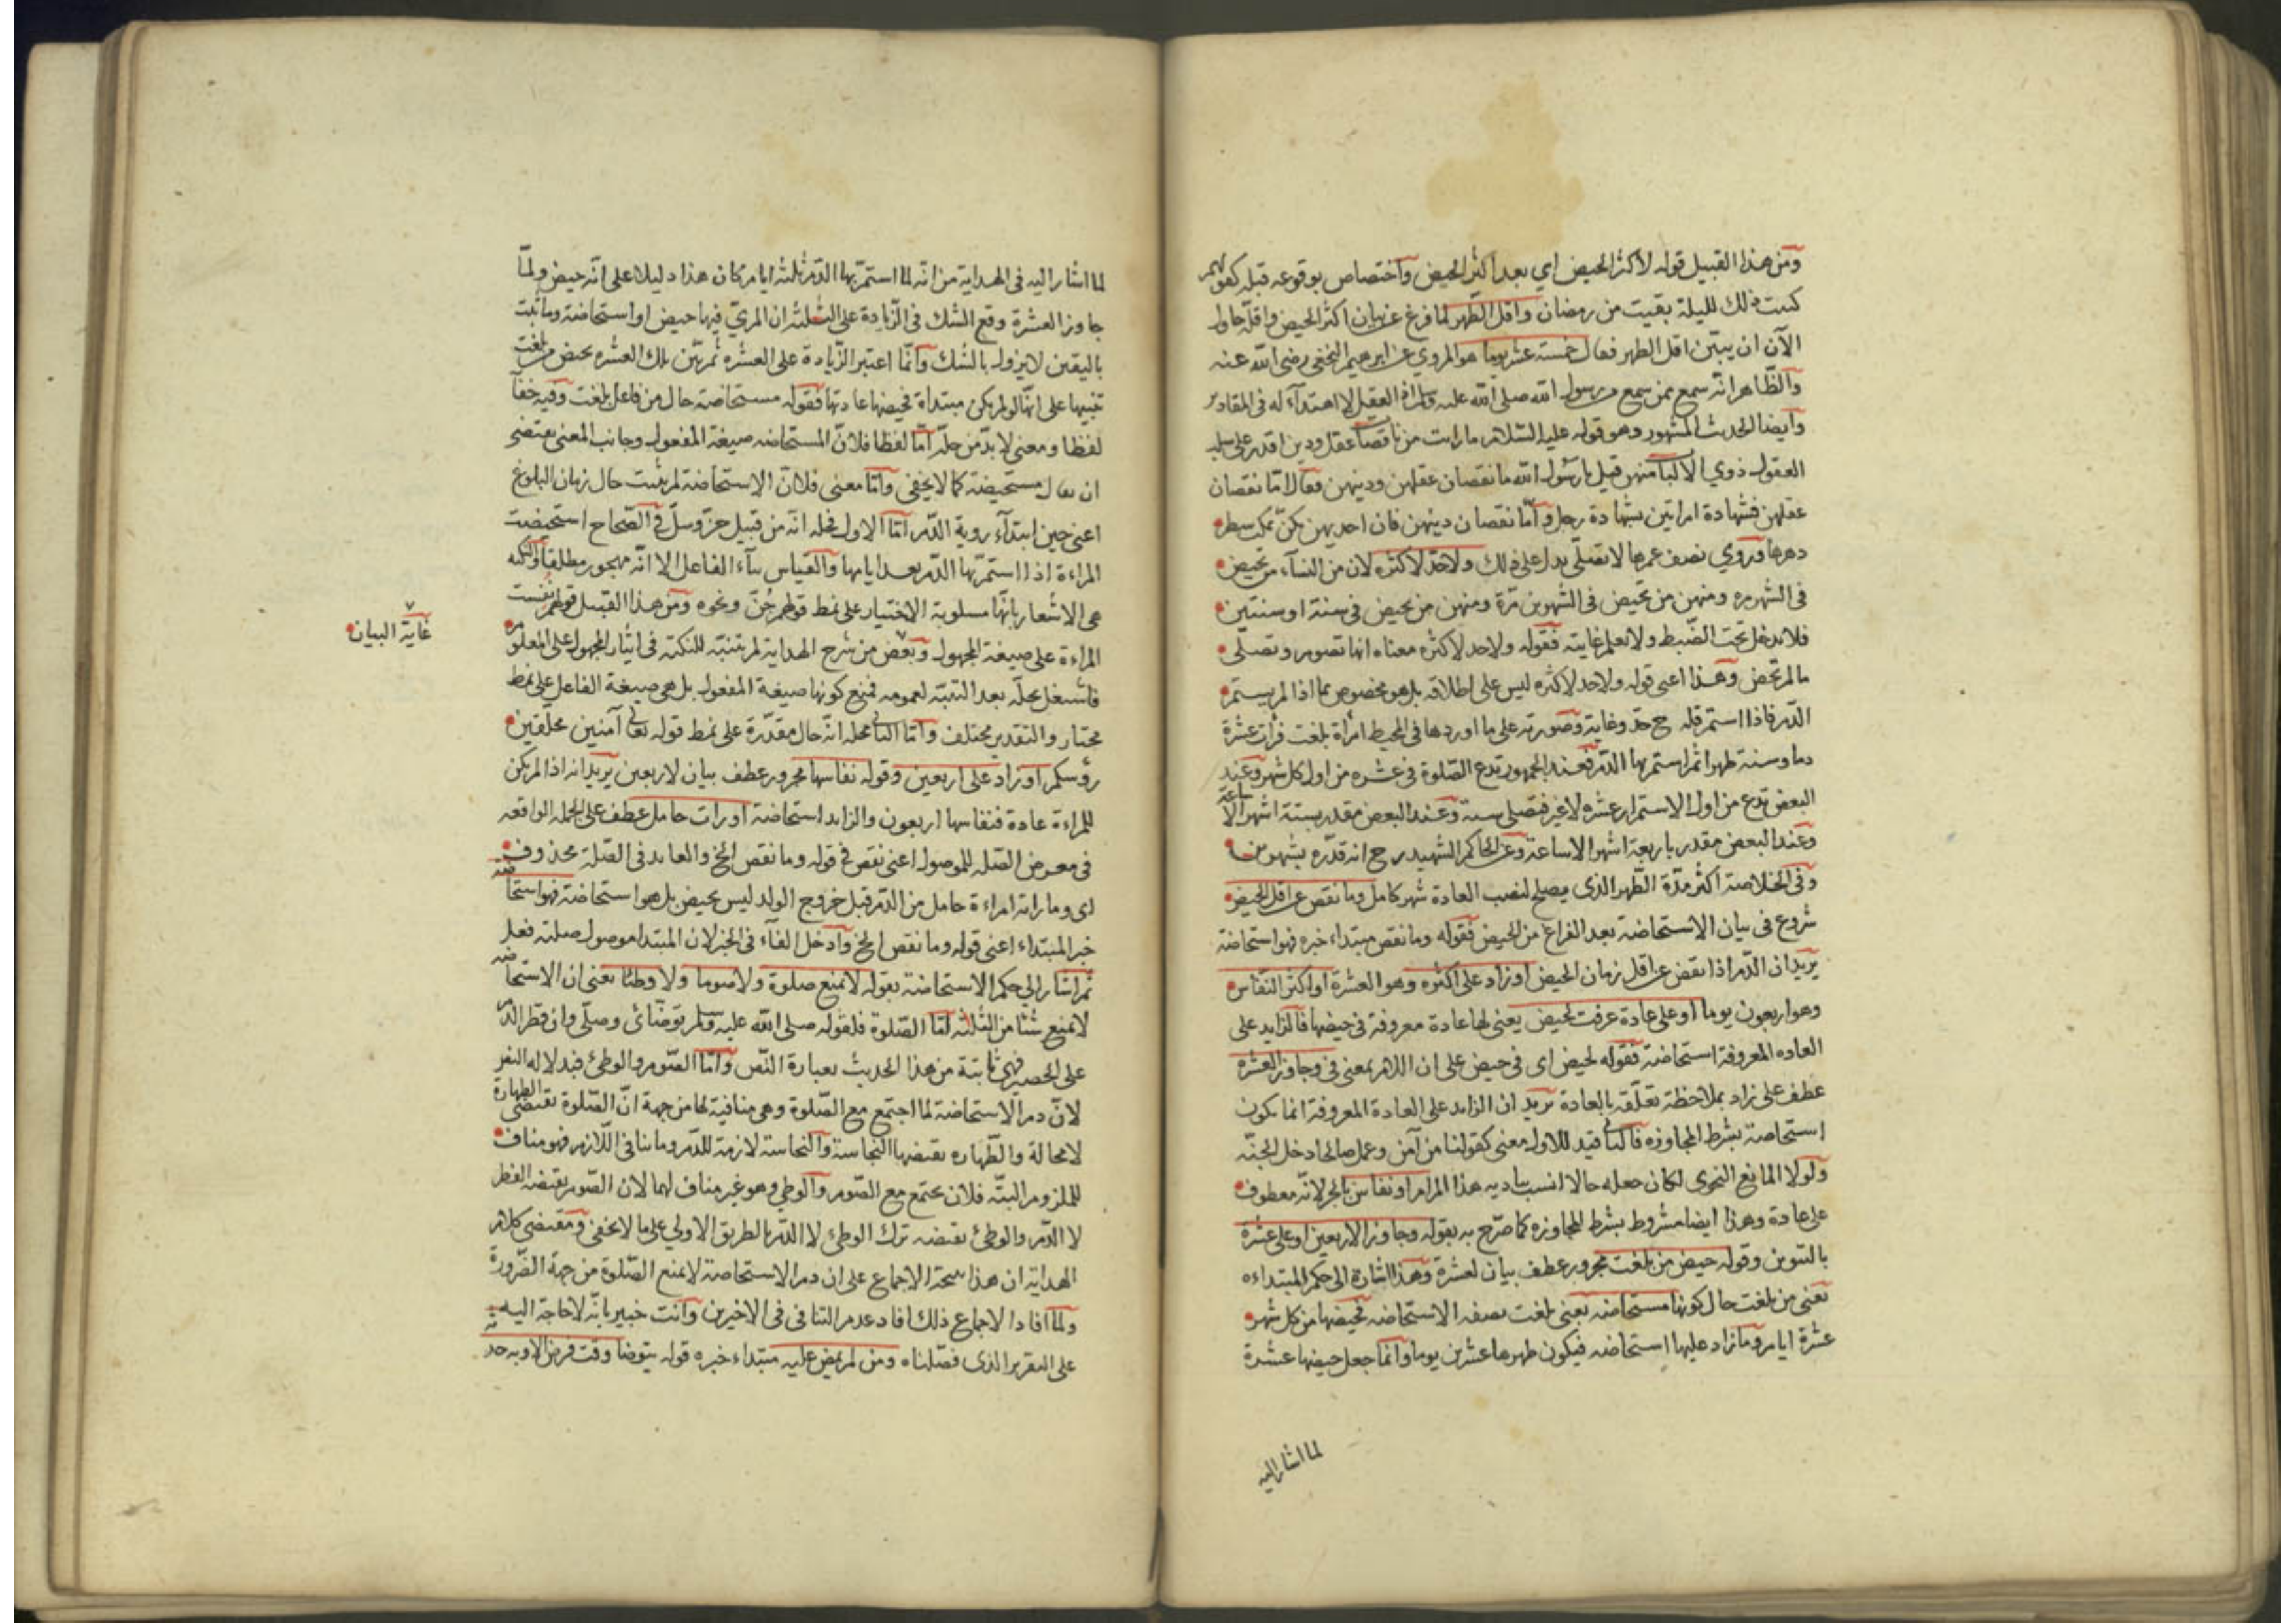 ومن هذا القبيل قوله لاكثر الحيض اي بعد اكثر الحيض واختصاص بوقوعه قبله كقولهم
كتبت ذلك لليلة بقيت من رمضان واقل الطهر لما فرغ عن بيان اكثر الحيض واقله حاول
الآن ان يبين اقل الطهر فقال خمسة عشر يوما هو المروي عن ابرهيم النخعي رضى الله عنه
والظاهر انه سمع ممن سمع من رسول الله صلى الله عليه وسلم اذ العقل لا اهتداء له في المقادير
وايضا الحديث المشهور وهو قوله عليه السلام ما رايت من ناقصات عقل ودين اقدر على سلب
العقول ذوي الالباب منهن قيل يا رسول الله ما نقصان عقلهن ودينهن فقال اما نقصان
عقلهن فشهادة امراتين بشهادة رجل واما نقصان دينهن فان احديهن تمكث شطر
دهرها وروي نصف عمرها لا تصلى يدل على ذلك ولا حد لاكثره لان من النساء من تحيض
في الشهر مره ومنهن من تحيض في الشهرين مرة ومنهن من يحيض في سنة او سنتين
فلا يدخل تحت الضبط ولا يعلم غايته فقوله ولا حد لاكثره معناه انها تصوم وتصلى
ما لم تحض وهذا اعنى قوله ولا حد لاكثره ليس على اطلاقه بل هو مخصوص بما اذا لم يستمر
الدم فاذا استمر فله ح حد وغاية وصورته على ما اوردها في المحيط امرأة بلغت فرأت عشرة
دما وسنة طهرا ثم استمر بها الدم فعند الجمهور تدع الصلوة في عشره من اول كل شهر وعند
البعض تدع من اول الاستمرار عشره لا غير فتصلى سنة وعند البعض مقدر بستة اشهر الا ساعة
وعند البعض مقدر باربعة اشهر الا ساعة وعن الحاكم الشهيد رح انه قدره بشهرين
وفي الخلاصة اكثر مدة الطهر الذى يصلح لنصب العادة شهر كامل وما نقص عن اقل الحيض
شروع في بيان الاستحاضة بعد الفراغ من الحيض فقوله وما نقص مبتداء خبره فهو استحاضة
يريد ان الدم اذا نقص عن اقل زمان الحيض او زاد على اكثره وهو العشرة او اكثر النفاس
وهو اربعون يوما او على عادة عرفت لحيض يعنى لها عادة معروفة في حيضها فالزايد على
العاده المعروفة استحاضة فقوله لحيض اى في حيض على ان اللام بمعنى في وجاوز العشره
عطف على زاد بملاحظة تعلقه بالعادة يريد ان الزايد على العادة المعروفة انما يكون
استحاضة بشرط المجاوزه فالثانى قيد للاول معنى كقولنا من آمن وعمل صالحا دخل الجنة
ولولا المانع النحوى لكان جعله حالا انسب بتاديه هذا المرام او نفاس بالجر لانه معطوف
على عادة وهذا ايضا مشروط بشرط المجاوزه كما صرح به بقوله وجاوز الاربعين او على عشرة
بالتنوين وقوله حيض من بلغت مجرور عطف بيان لعشرة وهذا اشارة الى حكم المبتداءه
يعنى من بلغت حال كونها مستحاضه يعنى بلغت بصفه الاستحاضه فحيضها من كل شهر
عشرة ايام وما زاد عليها استحاضه فيكون طهرها عشرين يوما وانما جعل حيضها عشرة
لما اشار اليه
لما اشار اليه في الهداية من انه لما استمر بها الدم ثلثة ايام كان هذا دليلا على انه حيض ولما
جاوز العشرة وقع الشك في الزيادة على الثلثة ان المريّ فيها حيض او استحاضة وما ثبت
باليقين لا يزول بالشك وانما اعتبر الزيادة على العشره ثم بيّن تلك العشره بحيض من بلغت
تنبيها على انها لو لم يكن مبتداة فحيضها عادتها فقوله مستحاضة حال من فاعل بلغت وفيه خفآ
لفظا ومعنى لا بد من حله اما لفظا فلان المستحاضه صيغة المفعول وجانب المعنى يقتضى
ان يقال مستحيضة كما لا يخفى واما معنى فلان الاستحاضة لم يثبت حال زمان البلوغ
اعنى حين ابتداء روية الدم اما الاول فحله انه من قبيل جنّ وسلّ في الصحاح استحيضت
المراءة اذا استمر بها الدم بعد ايامها والقياس بناء الفاعل الا انه مهجور مطلقا والنكته
هى الاشعار بانها مسلوبة الاختيار على نمط قولهم جُنّ ونحوه ومن هذا القبيل قولهم نفست
المراءة على صيغة المجهول وبعض من شرح الهداية لم يتنبه للنكتة في ايثار المجهول على المعلوم
غاية البيان
فاشتغل بحله بعد التنبه لعمومه فمنع كونها صيغة المفعول بل هى صيغة الفاعل على نمط
مختار والتقدير مختلف واما الثانى فحله انه حال مقدرة على نمط قوله تعالى آمنين محلقين
رؤسكم او زاد على اربعين وقوله نفاسها مجرور عطف بيان لاربعين يريد انه اذا لم يكن
للمراءة عادة فنفاسها اربعون والزايد استحاضة او رات حامل عطف على الجمله الواقعه
في معرض الصله للموصول اعنى نقص في قوله وما نقص الخ والعايد في الصلة محذوف
اى وما راته امراءة حامل من الدم قبل خروج الولد ليس بحيض بل هو استحاضة فهو استحاضه
خبر المبتداء اعنى قوله وما نقص الخ وادخل الفآء في الخبر لان المبتدا موصول صلته فعل
ثم اشار الى حكم الاستحاضة بقوله لا تمنع صلوة ولا صوما ولا وطئا يعنى ان الاستحاضه
لا تمنع شئا من الثلثه اما الصلوة فلقوله صلى الله عليه وسلم توضائ وصلى وان قطر الدم
على الحصير فهى ثابتة من هذا الحديث بعبارة النص واما الصوم والوطئ فبدلاله النص
لان دم الاستحاضة لما اجتمع مع الصلوة وهى منافية لها من جهة ان الصلوة تقتضى الطهارة
لا محالة والطهاره نقيضها النجاسة والنجاسة لازمة للدم وما ينافى اللازم فهو مناف
للملزوم البتّه فلان يجتمع مع الصوم والوطي وهو غير مناف لهما لان الصوم نقيضه الفطر
لا الدم والوطئ نقيضه ترك الوطئ لا الدم بالطريق الاولي على ما لا يخفى ومقتضى كلام
الهداية ان هذا نتيجة الاجماع على ان دم الاستحاضة لا يمنع الصلوة من جهة الضرورة
ولما افادا الاجماع ذلك افاد عدم التنافى في الاخيرين وانت خبير بانه لا حاجة اليه
على التقرير الذى فصلناه ومن لم يمض عليه مبتداء خبره قوله يتوضا وقت فرض الا وبه حدث